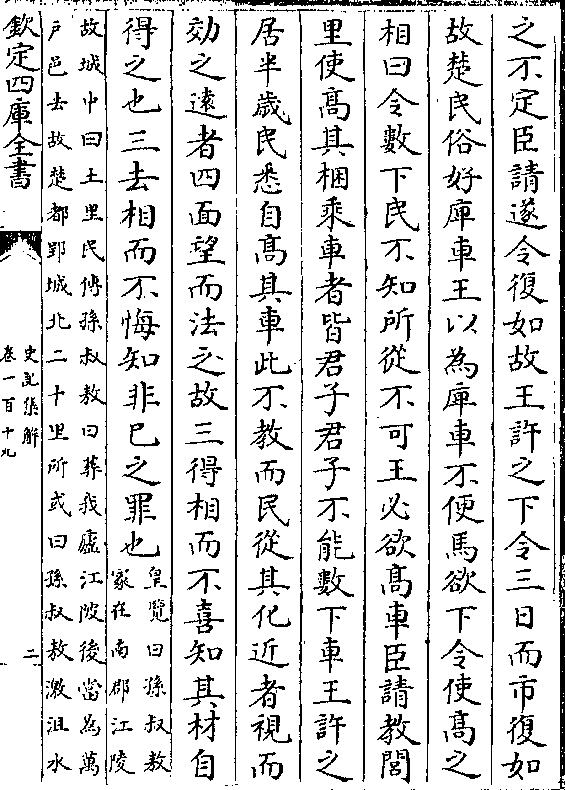 之不定臣請遂令復如故王許之下令三日而市復如
故楚民俗好庳車王以為庳車不便馬欲下令使髙之
相曰令數下民不知所從不可王必欲髙車臣請教閭
里使髙其梱乘車者皆君子君子不能數下車王許之
居半歲民悉自髙其車此不教而民從其化近者視而
効之逺者四面望而法之故三得相而不喜知其材自
得之也三去相而不悔知非已之罪也
皇覽曰孫叔敖
冡在南郡江陵
故城中白土里民傳孫叔敖曰葬我廬江陂後當為萬
户邑去故楚都郢城北二十里所或曰孫叔敖激沮水
欽定四庫全書
史記集解
卷一百十九
二